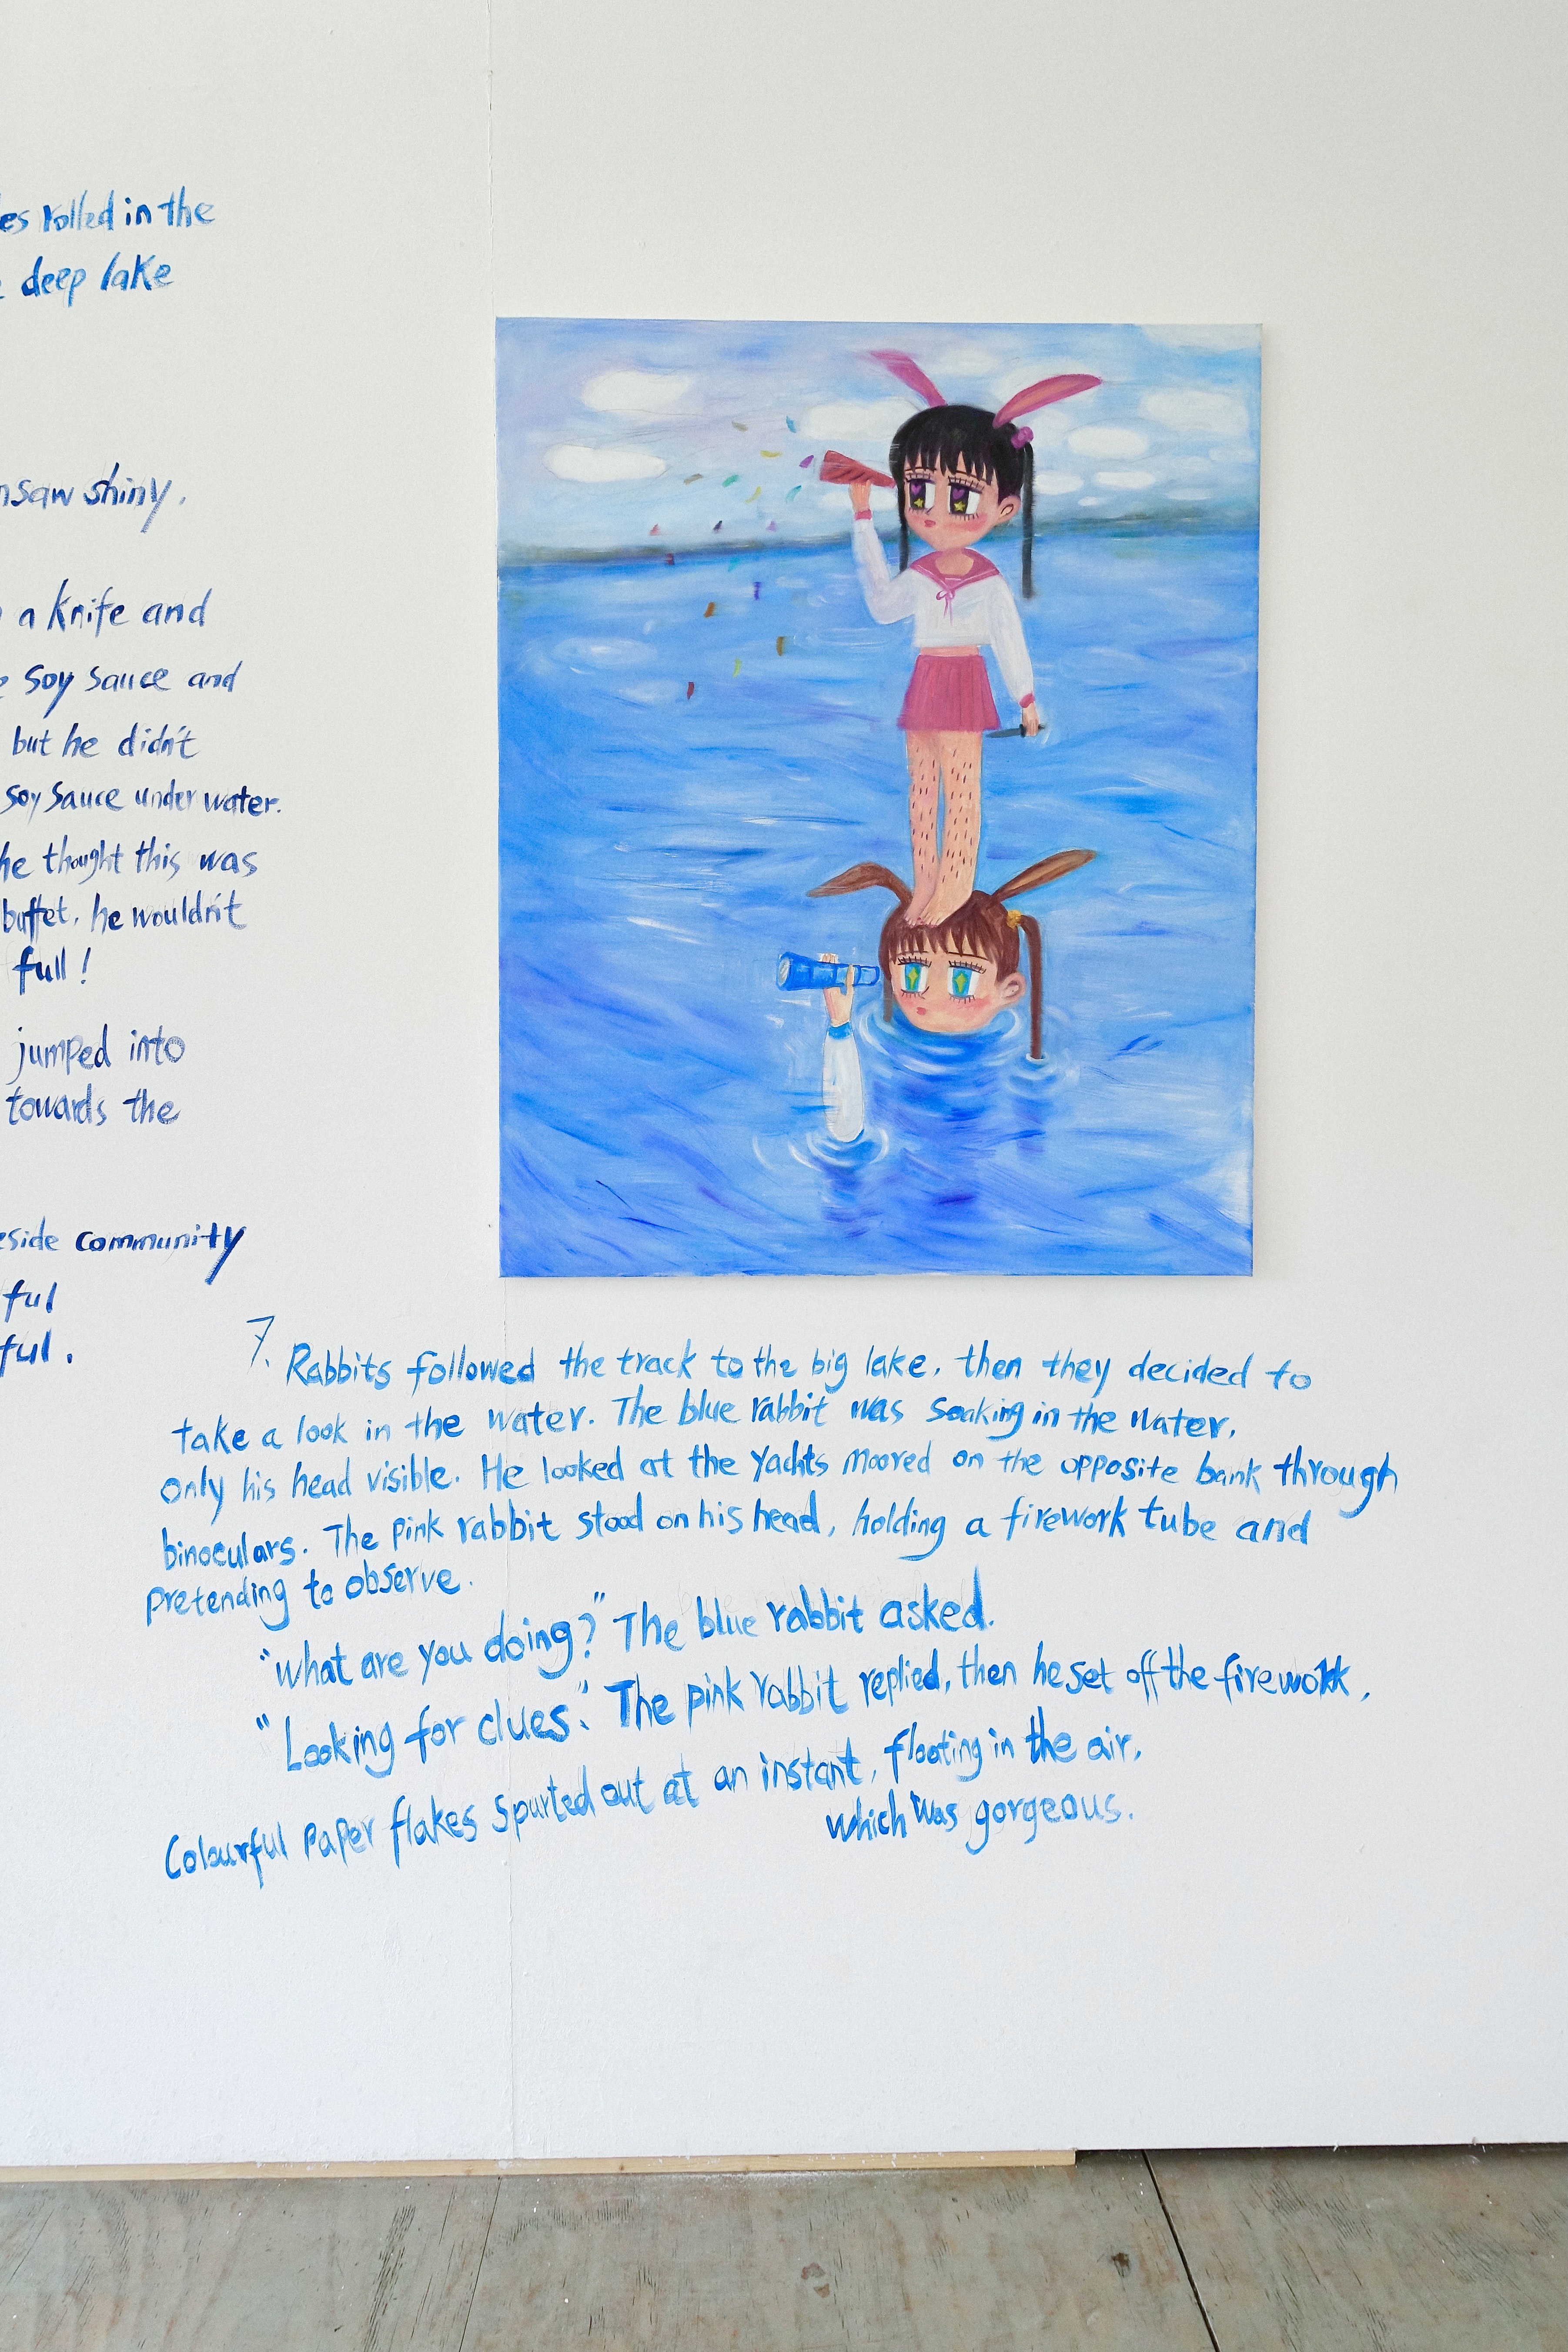 rolled in the
deep lake
shiny.
a knife and
soy sauce and
but he didn't
soy sauce under water.
he thought this was
buffet, he wouldn't
full!
jumped into
towards the
community
7. Rabbits followed the track to the big lake, then they decided to
take a look in the water. The blue rabbit was soaking in the water,
only his head visible. He looked at the yachts moored on the opposite bank through
binoculars. The pink rabbit stood on his head, holding a firework tube and
pretending to observe.
"what are you doing?" The blue rabbit asked.
"Looking for clues." The pink rabbit replied, then he set off the firework,
Colourful paper flakes spurted out at an instant, floating in the air,
which was gorgeous.